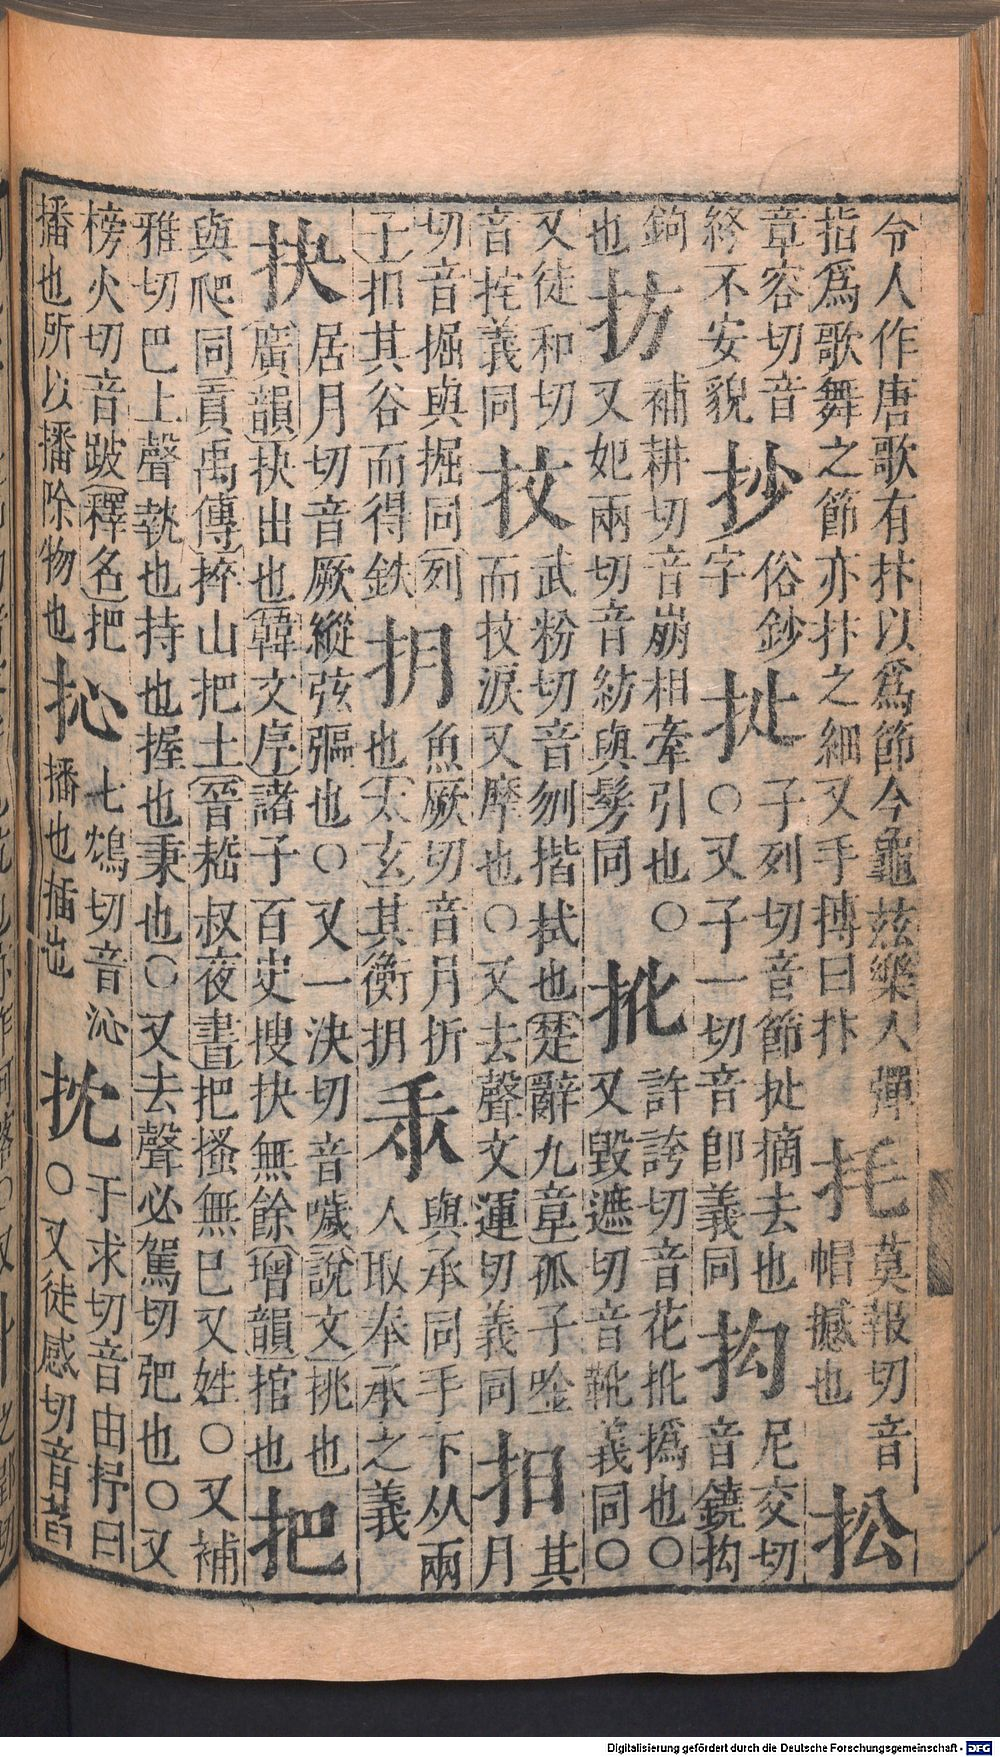 令人作唐歌有抃以爲節今龜茲樂人彈
指爲歌舞之節亦抃之細又手搏曰抃
㧌
莫報切音
帽撼也
⿰扌公
章容切音
終不安貌
抄
俗鈔
字
扯
子列切音節扯摘去也
○又子一切音卽義同
抅
尼交切
音鐃抅
鉤
也
㧍
補耕切音崩相牽引也○
又妃兩切音紡與髣同
⿰扌化
許誇切音花⿰扌化撝也○
又毀遮切音靴義同○
又徒和切
音拕義同
抆
武粉切音刎揩拭也楚辭九章孤子唫
而抆淚又摩也○又去聲文運切義同
抇
其
月
切音掘與掘同列
子抇其谷而得鈇
抈
魚厥切音月折
也太玄其衡抈
氶
與承同手下从兩
人取奉承之義
抉
居月切音厥縱弦彄也○又一決切音噦說文挑也
廣韻抉出也韓文序諸子百史搜抉無餘增韻捾也
把
與爬同貢禹傳捽山把土晉嵇叔夜書把搔無巳又姓○又補
雅切巴上聲執也持也握也秉也○又去聲必駕切弝也○又
榜火切音跛釋名把
播也所以播除物也
⿰扌心
七鴆切音沁
播也插也
抌
于求切音由抒臼
○又徒感切音萏
Digitalisierung gefördert durch die Deutsche Forschungsgemeinschaft - DFG